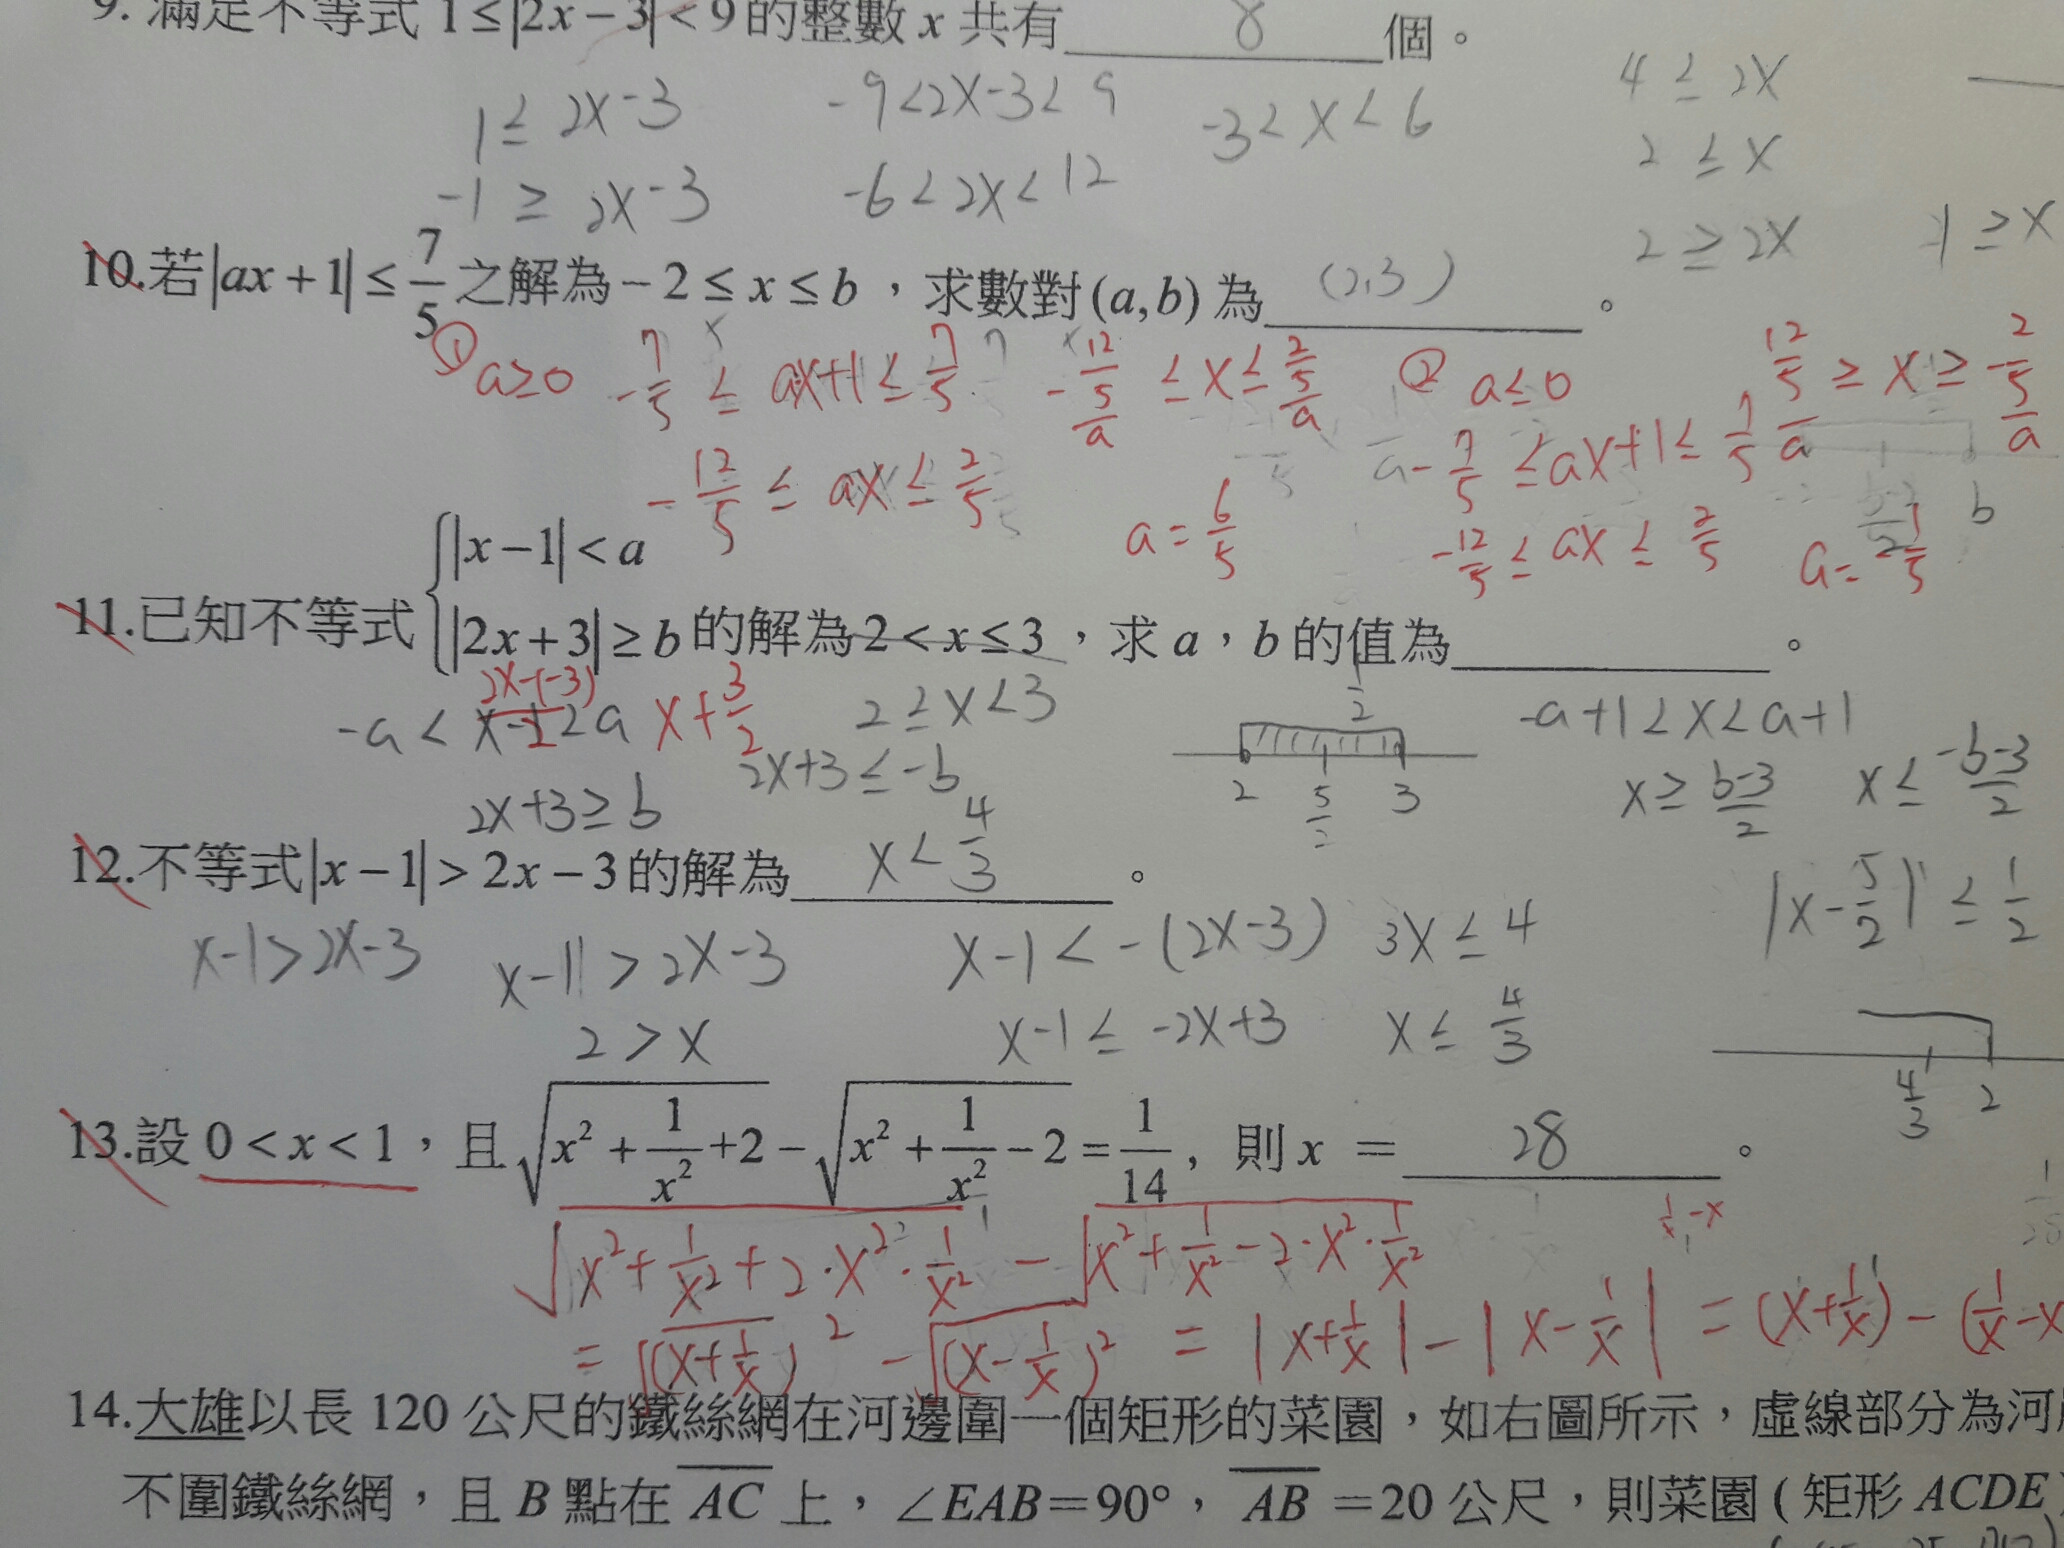 9. 滿足不等式 1≤|2x−3|<9的整數 x 共有 8 個。
1≤ 2x-3 -9<2x-3<9 -3<x<6 4≤2x
2≤x
-1≥ 2x-3 -6<2x<12 2≥2x 1≥x
10.若|ax+1|≤7/5之解為−2≤x≤b，求數對(a,b)為 (2,3) 。
① a≥0 -7/5 ≤ ax+1 ≤ 7/5 -12/5/a ≤x≤ 2/5/a ② a≤0 12/5/a ≥ x ≥ -2/5/a
-7/5 ≤ax+1≤ 7/5
-12/5 ≤ ax ≤ 2/5 a=6/5 -12/5 ≤ ax ≤ 2/5 a=-1/5
11.已知不等式{|x−1|<a |2x+3|≥b的解為2<x≤3，求a，b的值為 。
2x-(-3)
-a< x-1 <a x+3/2 2≥x<3 1/2 -a+1<x<a+1
2 5/2 3
2x+3≥b 2x+3≤-b x≥ b-3/2 x≤ -b-3/2
12.不等式|x−1|>2x−3的解為 x<4/3 。
|x-5/2| ≤ 1/2
x-1>2x-3 x-1>2x-3 x-1<-(2x-3) 3x≤4
2>x x-1≤-2x+3 x≤4/3
4/3 2
13.設 0<x<1，且√x²+1/x²+2−√x²+1/x²−2=1/14, 則x = 28 。
1/x-x
√x²+1/x²+2·x²·1/x² - √x²+1/x²-2·x²·1/x²
= √(x+1/x)² - √(x-1/x)² = |x+1/x|-|x-1/x| = (x+1/x)-(1/x-x
14.大雄以長 120 公尺的鐵絲網在河邊圍一個矩形的菜園，如右圖所示，虛線部分為河
不圍鐵絲網，且 B 點在 AC 上，∠EAB=90°，AB=20 公尺，則菜園 ( 矩形 ACDE